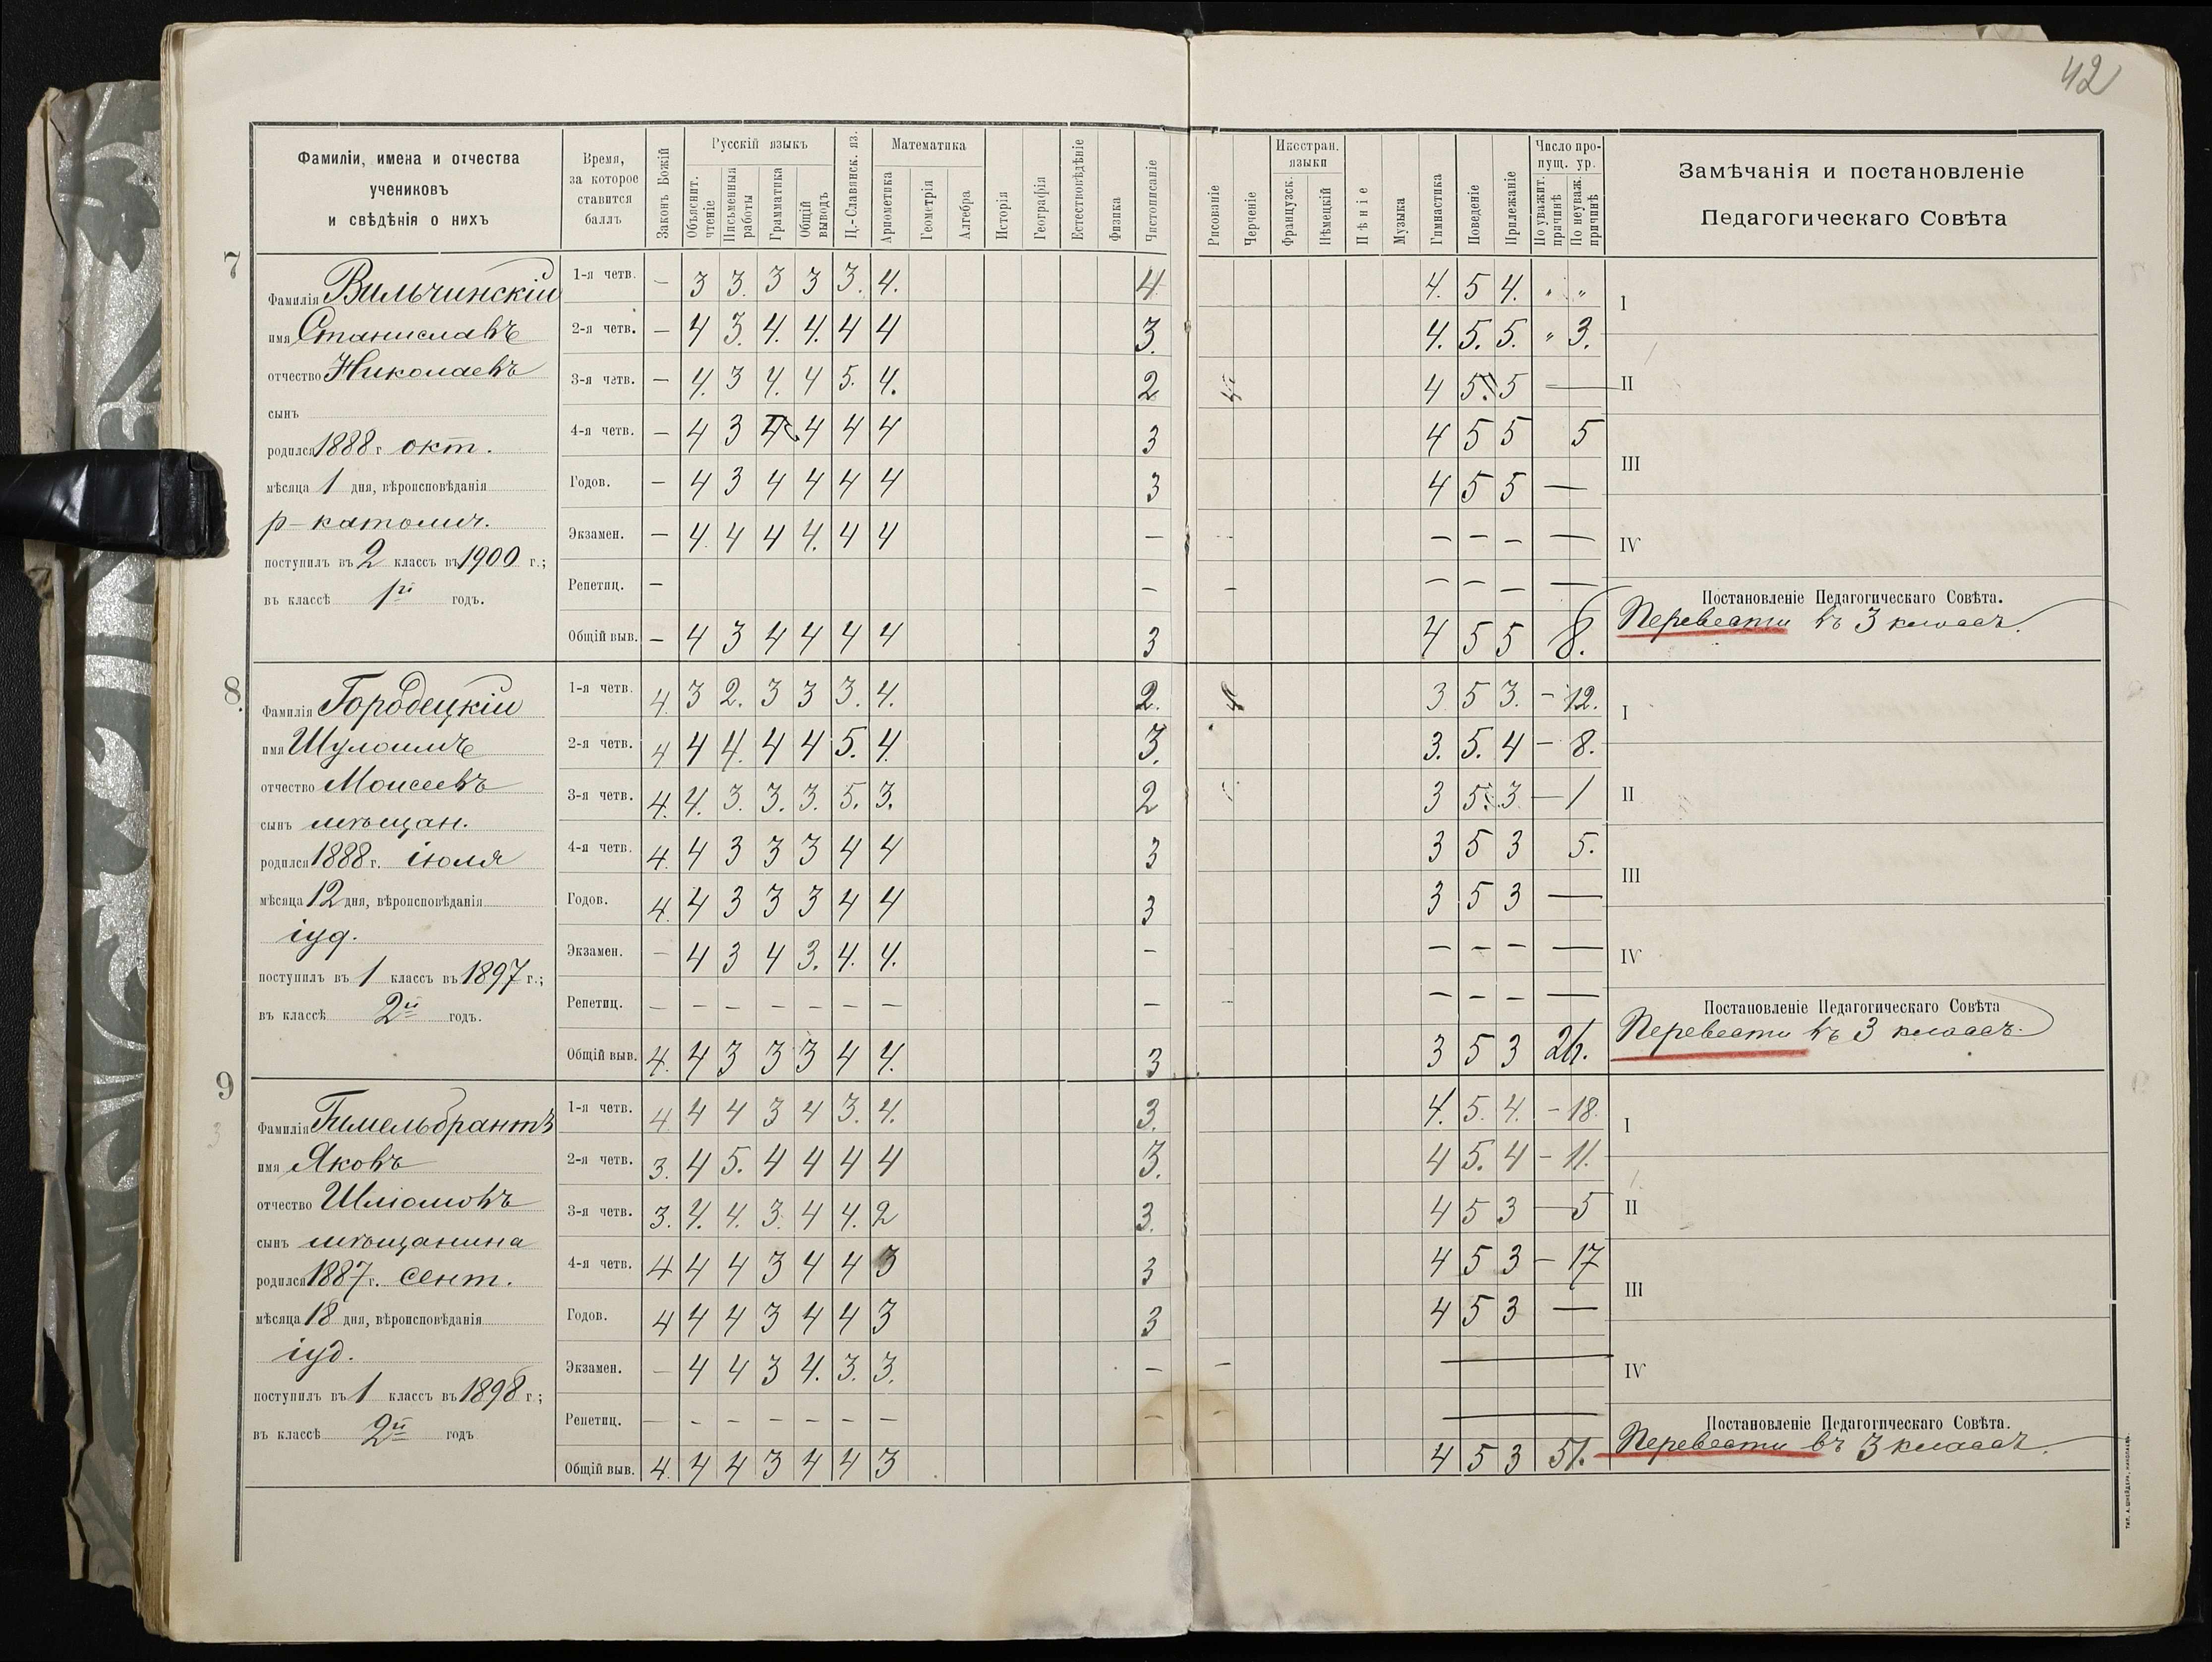 42
Фамиліи, имена и отчества
учениковъ
и свѣдѣнія о нихъ
Время,
за которое
ставится
баллъ
Законъ Божій
Русскій языкъ
Объяснит. чтеніе
Письменныя работы
Грамматика
Общій выводъ
Ц.-Славянск. яз.
Математика
Ариѳметика
Геометрія
Алгебра
Исторія
Географія
Естествовѣдѣніе
Физика
Чистописаніе
Рисованіе
Черченіе
Иностран.
языки
Французск.
Нѣмецкій
Пѣніе
Музыка
Гимнастика
Поведеніе
Прилежаніе
Число про-
пущ. ур.
По уважит. причинѣ
По неуваж. причинѣ
Замѣчанія и постановленіе
Педагогическаго Совѣта
7
Фамилія Вильчинскій
имя Станиславъ
отчество Николаевъ
сынъ
родился 1888 г окт.
мѣсяца 1 дня, вѣроисповѣданія
р-католич.
поступилъ въ 2 классъ въ 1900 г.;
въ классѣ 1й годъ.
1-я четв. — 3 3. 3 3 3. 4. 4 4. 5 4. „ „
2-я четв. — 4 3. 4. 4. 4 4 3. 4. 5. 5. „ 3.
3-я четв. — 4. 3 4. 4 5. 4. 2 4 5. 5 —
4-я четв. — 4 3 4 4 4 4 3 4 5 5 5
Годов. — 4 3 4 4 4 4 3 4 5 5 —
Экзамен. — 4. 4 4 4. 4 4 — — — — —
Репетиц. — — — — — — —
Общій выв. — 4 3 4 4 4 4 3 4 5 5 8.
I
II
III
IV
Постановленіе Педагогическаго Совѣта.
Перевести въ 3 классъ.
8.
Фамилія Городецкій
имя Шулоимъ
отчество Моисеевъ
сынъ мѣщан.
родился 1888 г. іюля
мѣсяца 12 дня, вѣроисповѣданія
іуд.
поступилъ въ 1 классъ въ 1897 г.;
въ классѣ 2й годъ.
1-я четв. 4. 3 2. 3 3 3. 4. 2. 4 3 5 3. — 12.
2-я четв. 4 4 4. 4 4 5. 4. 3. 3. 5. 4 — 8.
3-я четв. 4. 4. 3. 3. 3. 5. 3. 2 3 5. 3 — 1
4-я четв. 4. 4 3 3 3 4 4 3 3 5 3 5.
Годов. 4. 4 3 3 3 4 4 3 3 5 3 —
Экзамен. — 4 3 4 3. 4. 4. — — — — —
Репетиц. — — — — — — — — — — — — —
Общій выв. 4. 4 3 3 3 4 4. 3 3 5 3 26.
I
II
III
IV
Постановленіе Педагогическаго Совѣта
Перевести въ 3 классъ.
9
3
Фамилія Гимельбрантъ
имя Яковъ
отчество Шліомовъ
сынъ мѣщанина
родился 1887 г. сент.
мѣсяца 18 дня, вѣроисповѣданія
іуд.
поступилъ въ 1 классъ въ 1898 г.;
въ классѣ 2й годъ
1-я четв. 4. 4 4 3 4 3. 4. 3. 4. 5. 4. — 18.
2-я четв. 3. 4 5. 4 4 4 4 3. 4 5. 4 — 11.
3-я четв. 3. 4. 4. 3. 4 4. 2 3. 4 5 3 — 5
4-я четв. 4 4 4 3 4 4 3 3 4 5 3 — 17
Годов. 4 4 4 3 4 4 3 3 4 5 3 —
Экзамен. — 4 4 3 4. 3. 3. — — —
Репетиц. — — — — — — — — — —
Общій выв. 4. 4 4 3 4 4 3 4 5 3 51.
I
II
III
IV
Постановленіе Педагогическаго Совѣта.
Перевести въ 3 классъ.
ТИП. А. ШНЕЙДЕРА, НИКОЛАЕВЪ